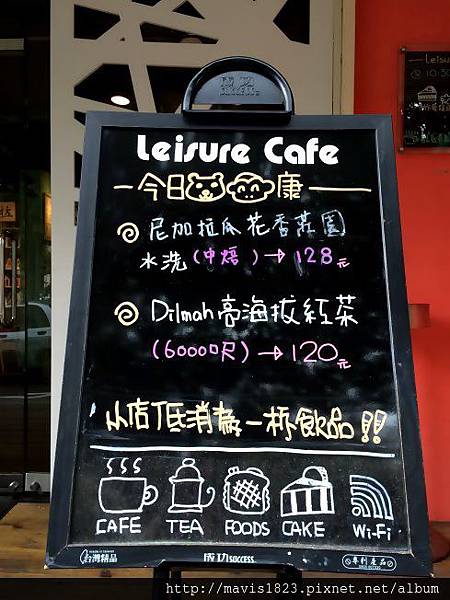 成功
SUCCESS
Leisure Cafe
今日康
尼加拉瓜花香莊園
水洗(中焙)→128元
Dilmah高海拔紅茶
(6000呎)→120元
本店低消為一杯飲品!!
CAFE TEA FOODS CAKE Wi-Fi
MADE IN TAIWAN
台灣精品
成功 SUCCESS
專利產品
Leisu
10:30
http://mavis1823.pixnet.net/album